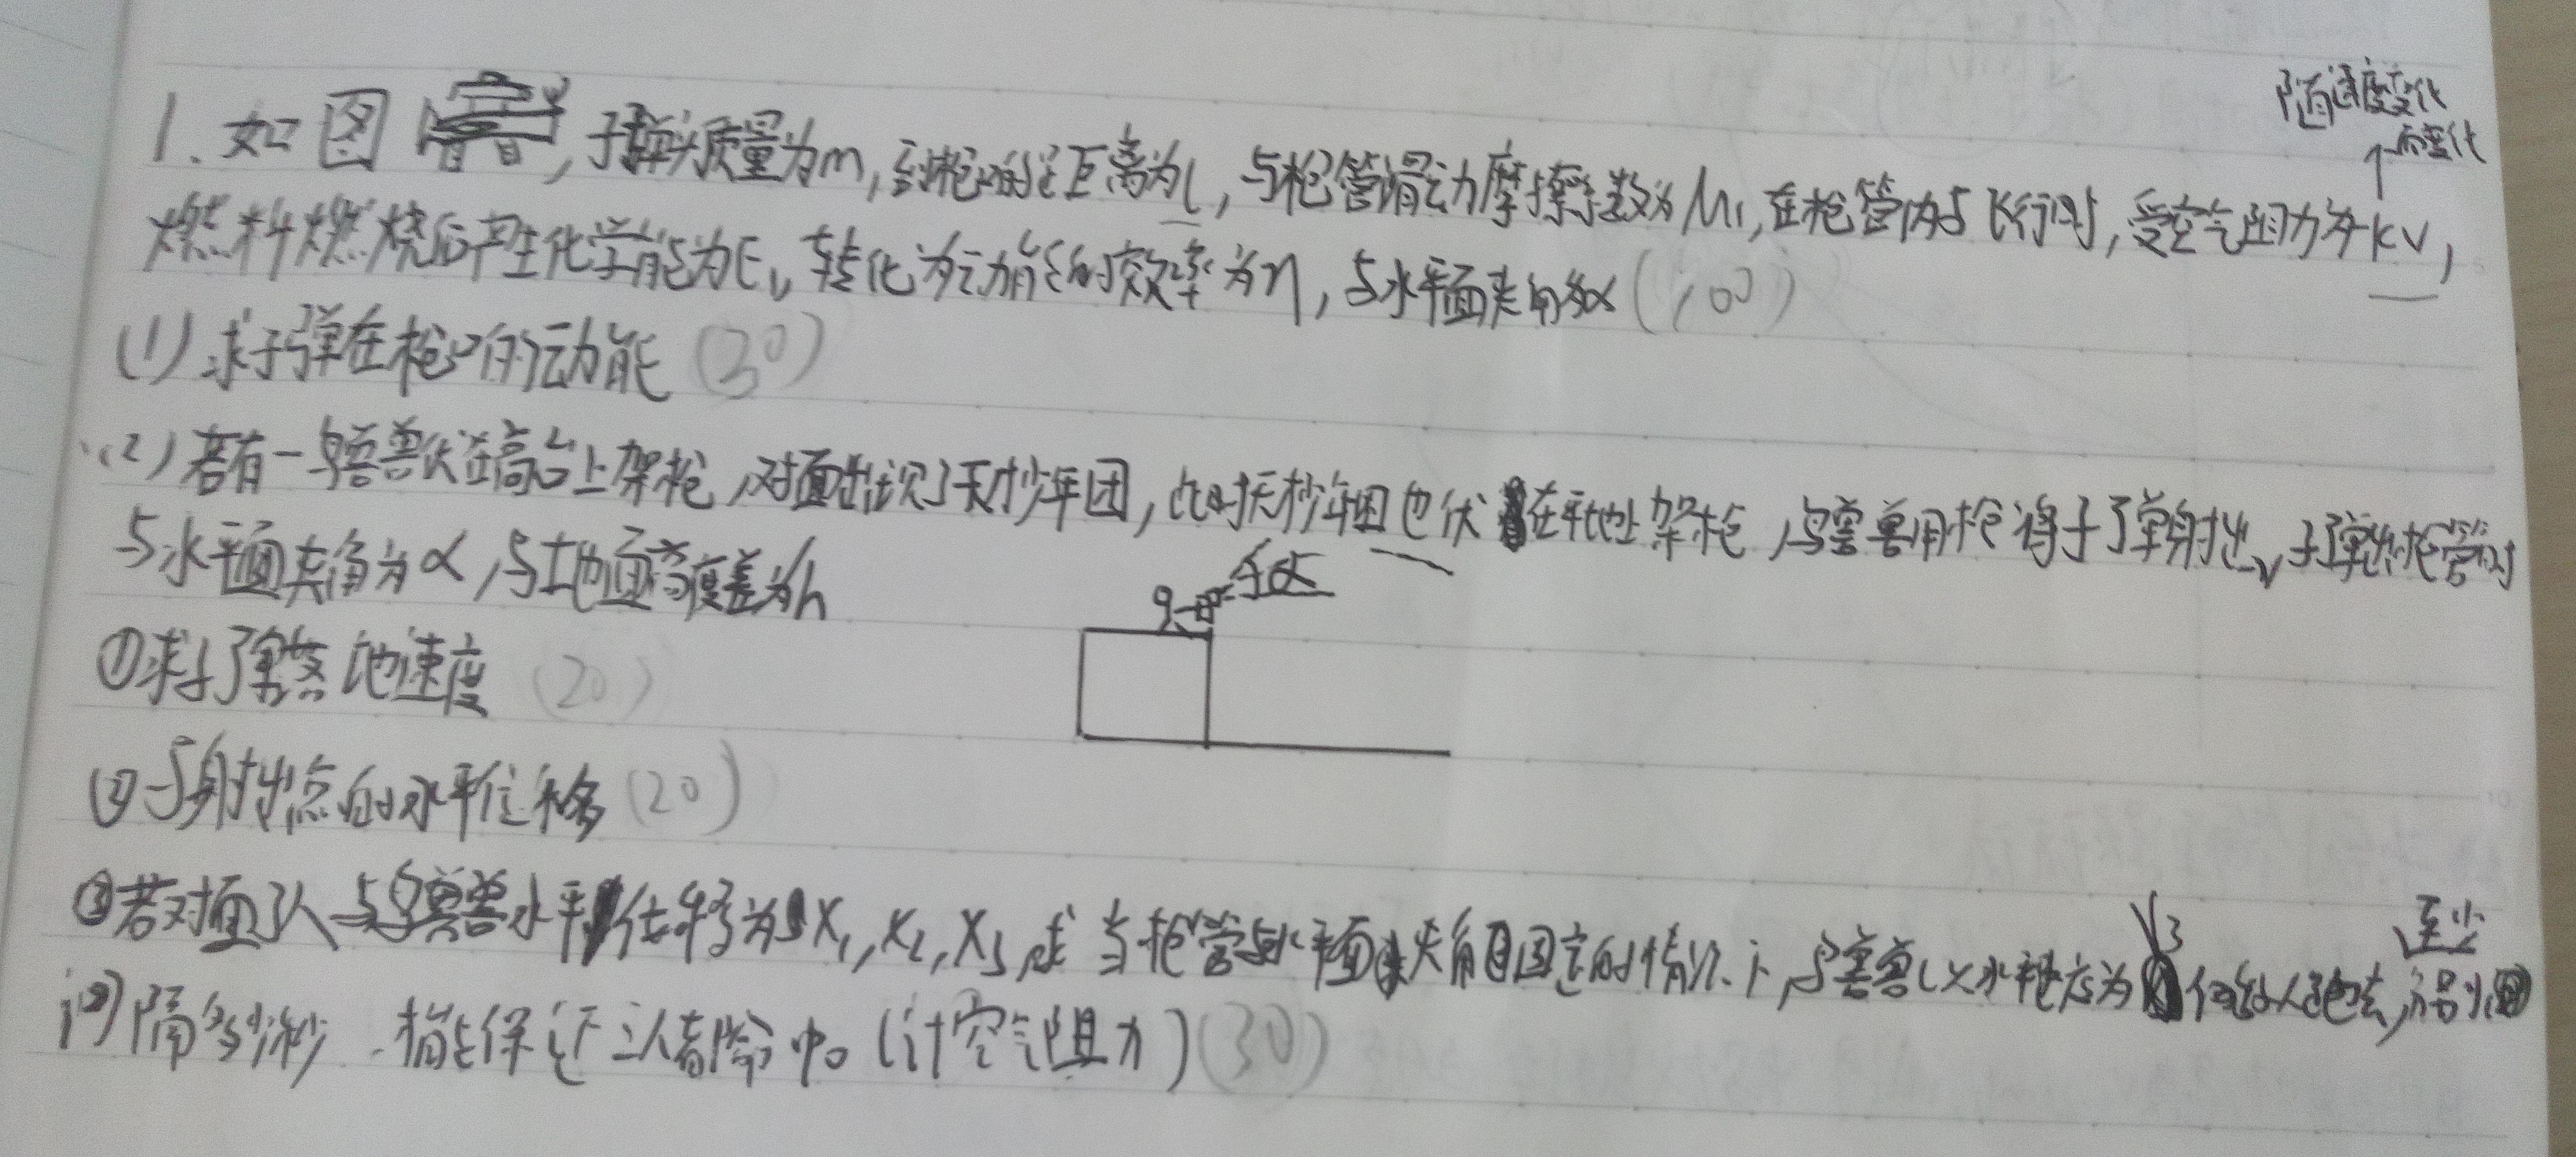 随速度变化
而变化
1. 如图, 子弹头质量为m, 到枪口的距离为l, 与枪管滑动摩擦系数为μ1, 在枪管内与飞行时, 受空气阻力为kv,
燃料燃烧后产生化学能为E, 转化为动能的效率为η, 与水平面夹角为α (100)
(1) 求子弹在枪口的动能 (30)
(2) 若有一兽伏在高台上架枪, 对面出现了天抄年团, 此时天抄年团也伏在平地上架枪, 兽用枪将子弹射出, 子弹出枪管时
与水平面夹角为α, 与地面高度差为h
α
①求子弹落地速度 (20)
②与射出点的水平位移 (20)
③若对面3人与兽水平位移为X1, X2, X3, 求当枪管与水平面夹角固定的情况下, 兽以水平速度为V3 向 人跑去, 至少
问隔多少秒 才能保证三人都命中。(计空气阻力) (30)